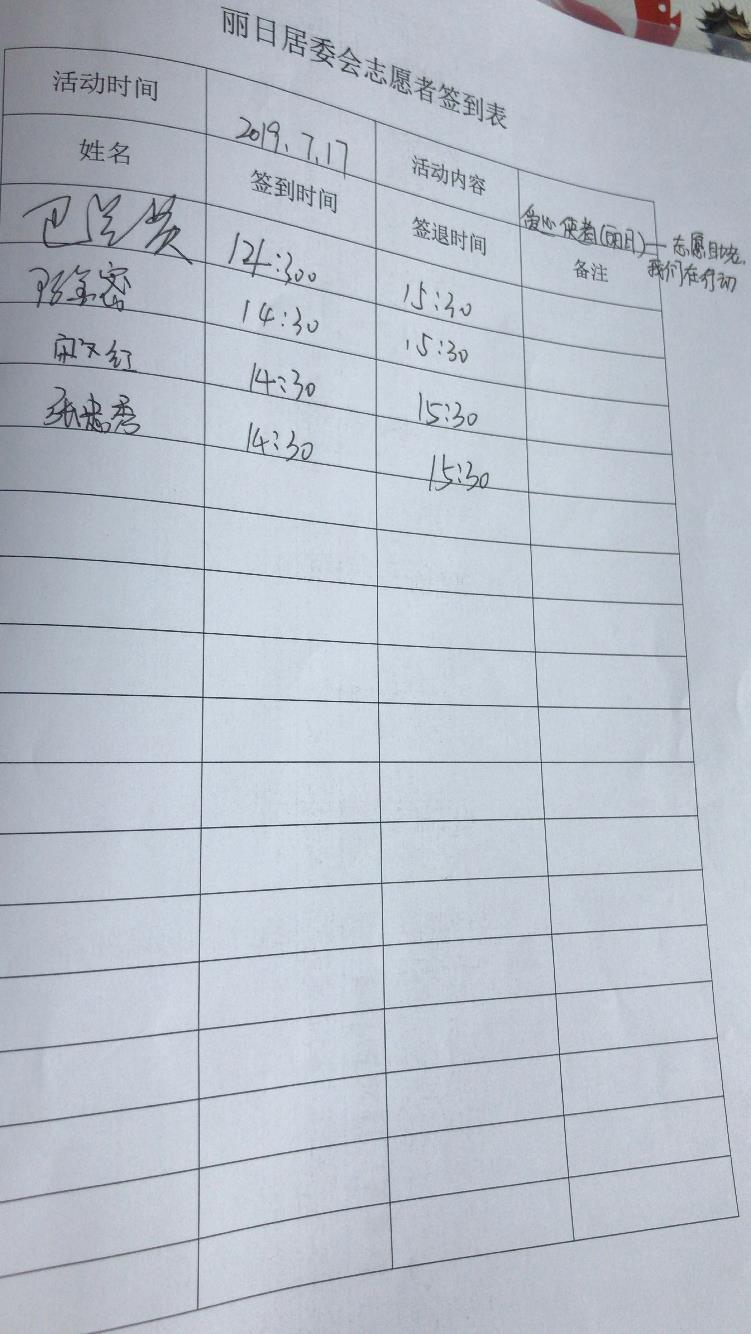 丽日居委会志愿者签到表
活动时间 2019.7.17 活动内容 爱心使者(丽日)—志愿助老,
我们在行动
姓名 签到时间 签退时间 备注
15:30
14:30 15:30
14:30 15:30
张 秀 14:30 15:30